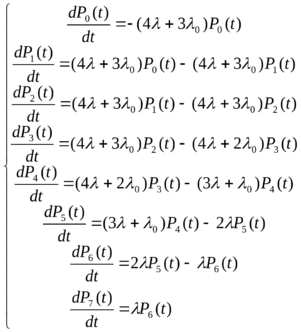 dP₀(t)/dt = -(4λ + 3λ₀)P₀(t)
dP₁(t)/dt = (4λ + 3λ₀)P₀(t) - (4λ + 3λ₀)P₁(t)
dP₂(t)/dt = (4λ + 3λ₀)P₁(t) - (4λ + 3λ₀)P₂(t)
dP₃(t)/dt = (4λ + 3λ₀)P₂(t) - (4λ + 2λ₀)P₃(t)
dP₄(t)/dt = (4λ + 2λ₀)P₃(t) - (3λ + λ₀)P₄(t)
dP₅(t)/dt = (3λ + λ₀)P₄(t) - 2λP₅(t)
dP₆(t)/dt = 2λP₅(t) - λP₆(t)
dP₇(t)/dt = λP₆(t)